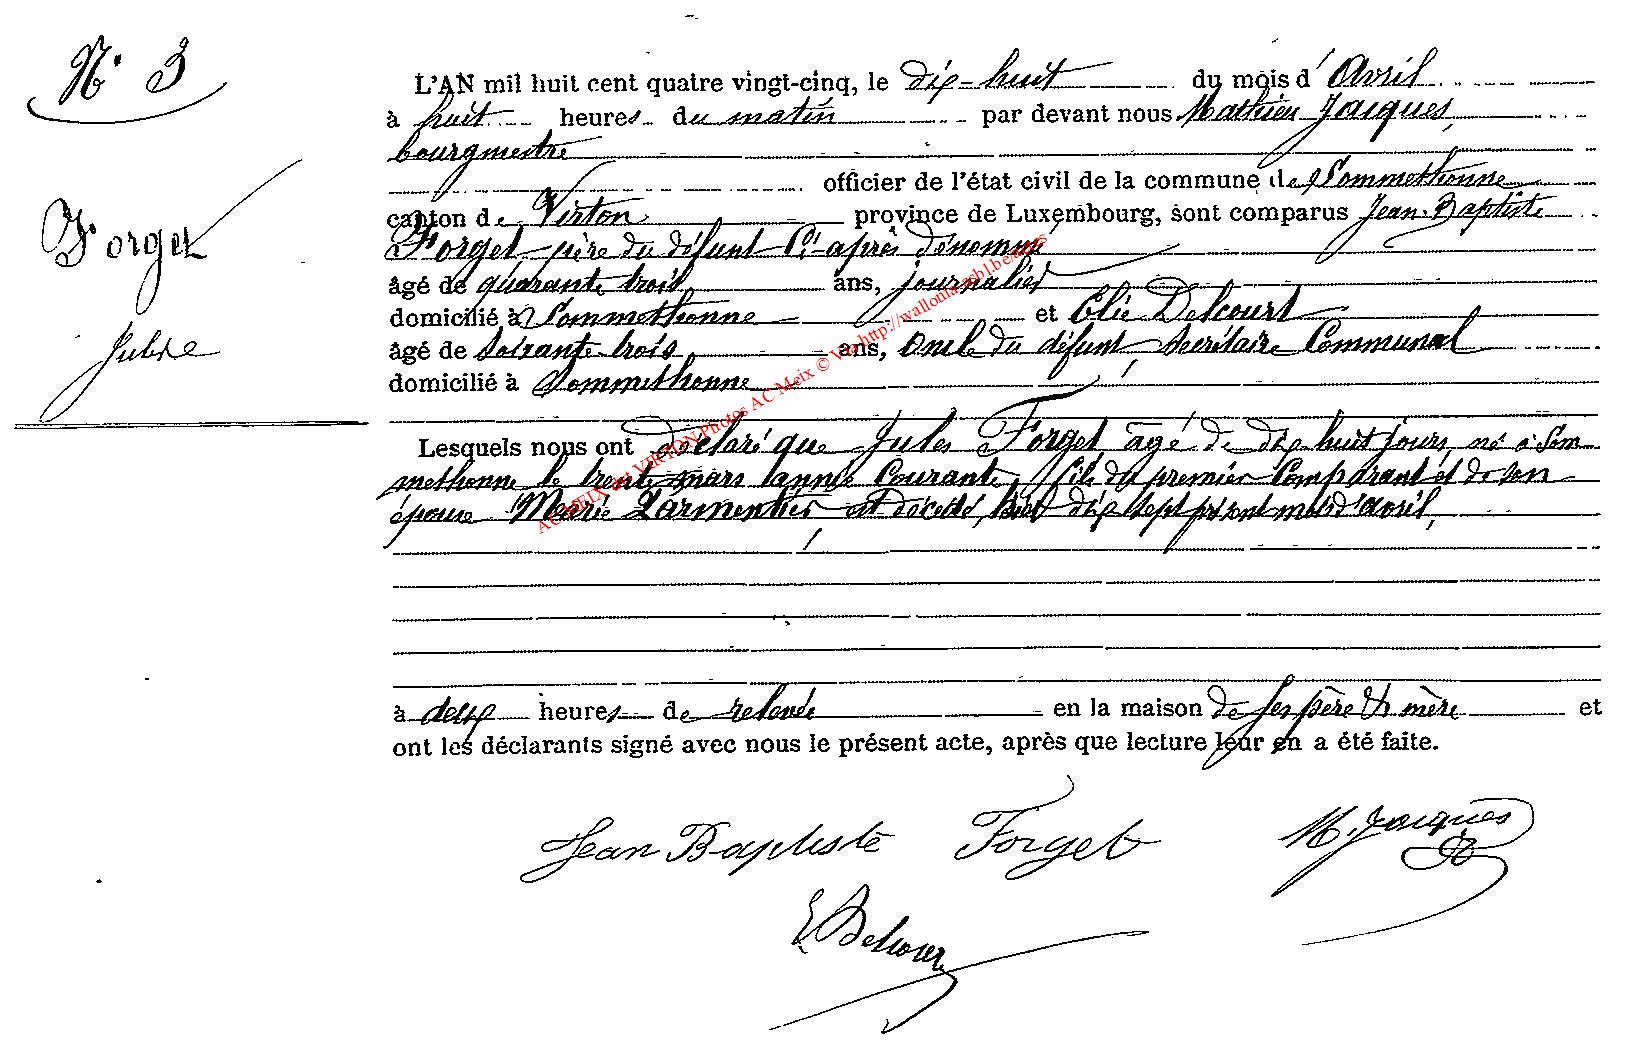 N° 3
L'AN mil huit cent quatre vingt-cinq, le dix-huit du mois d' Avril
à huit heures du matin par devant nous Mathieu Jacques,
bourgmestre
officier de l'état civil de la commune de Sommethonne
canton de Virton province de Luxembourg, sont comparus Jean-Baptiste
Forget père du défunt ci-après dénommé
âgé de quarante trois ans, journalier
domicilié à Sommethonne et Elie Delcourt
âgé de soixante-trois ans, oncle du défunt, secrétaire Communal
domicilié à Sommethonne
Forget
Jules
Lesquels nous ont déclaré que Jules Forget, âgé de dix huit jours, né à Som-
methonne le trente mars année Courante, fils du premier Comparant et de son
épouse Marie Parmentier est décédé, hier dix sept présent mois d'avril,
à deux heures de relevée en la maison de ses père & mère et
ont les déclarants signé avec nous le présent acte, après que lecture leur en a été faite.
Jean Baptiste Forget M. Jacques
E Delcourt
AC MEIX et VIRTON Photos AC Meix © Via http://wallonia-asbl.be